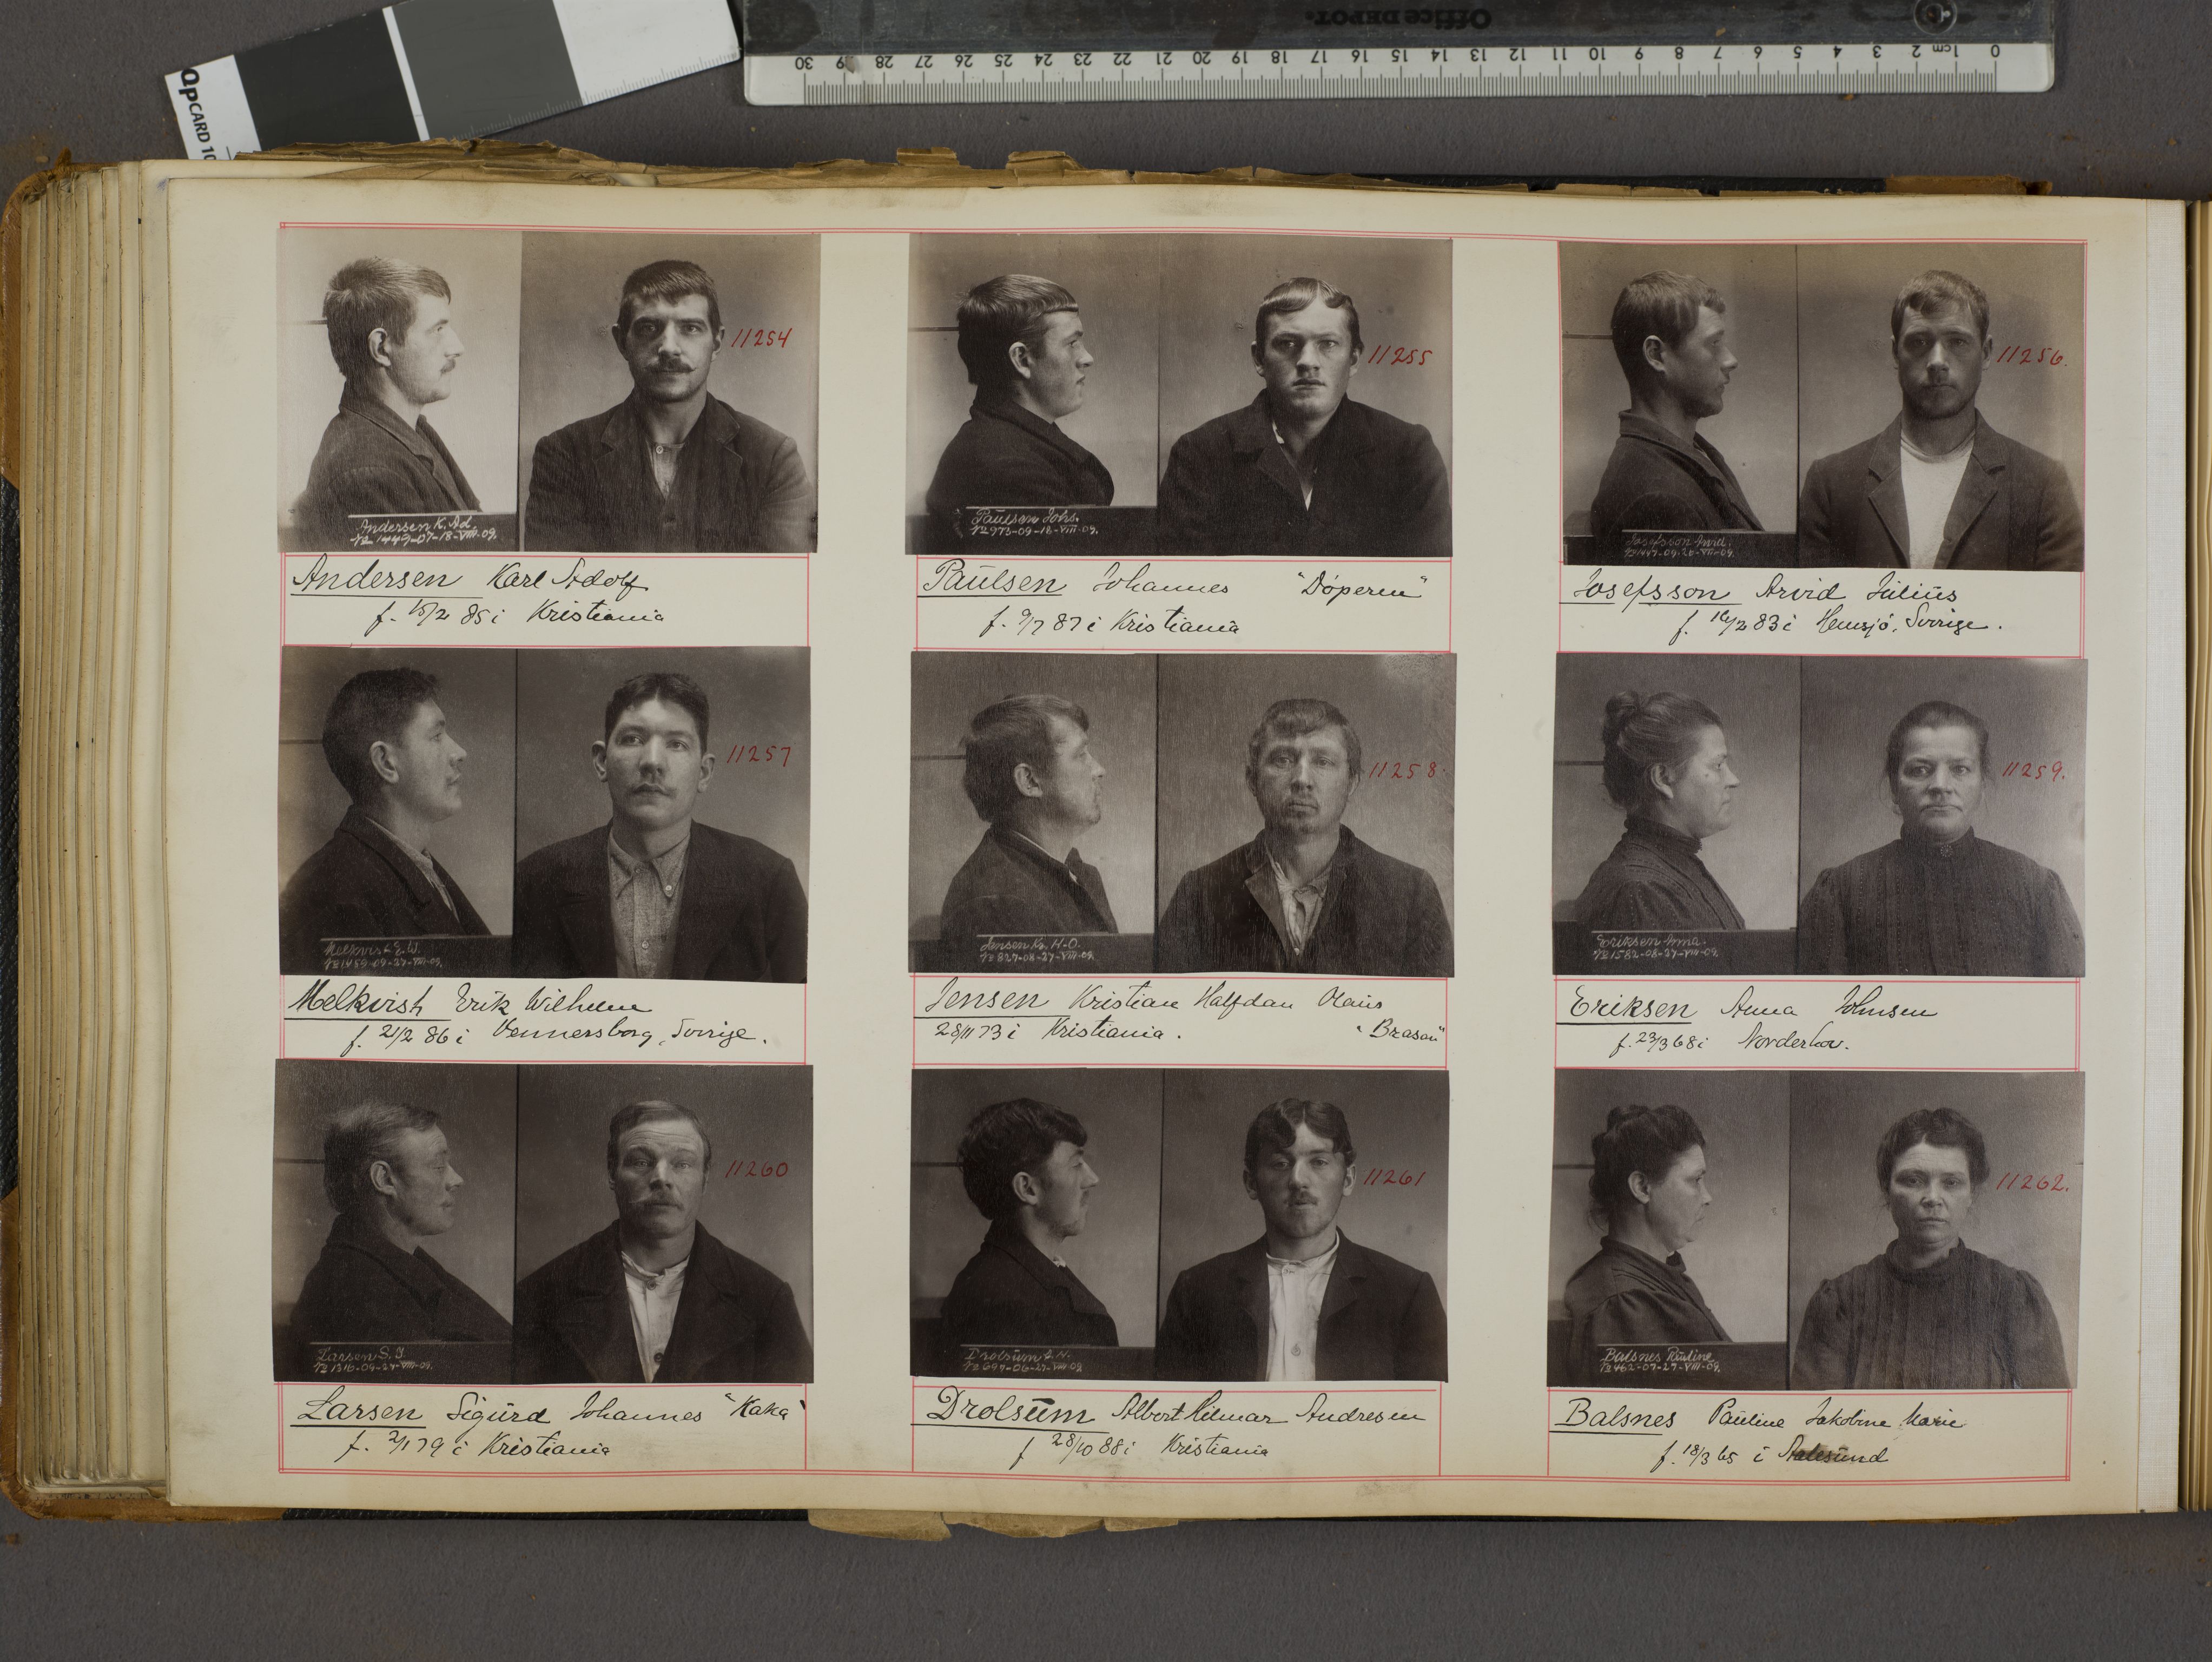 Office DEPOT.
0 1cm 2 3 4 5 6 7 8 9 10 11 12 13 14 15 16 17 18 19 20 21 22 23 24 25 26 27 28 29 30
OpCARD 10
11254
Andersen K. Ad.
No 1449-07-18-VIII-09.
Andersen Karl Adolf
f. 15/2 85 i Kristiania
11255
Paulsen Johs.
No 973-09-18-VIII-09.
Paulsen Johannes "Döperen"
f. 9/7 87 i Kristiania
11256.
Josefsson Arvid.
No 1447-09-20-VIII-09.
Josefsson Arvid Julius
f. 16/2 83 i Hemsjö, Sverige.
11257
Melkvist E. W.
No 1459-09-27-VIII-09.
Melkvist Erik Wilhelm
f. 21/2 86 i Vennersborg, Sverige.
11258.
Jensen Kr. H. O.
No 827-08-27-VIII-09.
Jensen Kristian Halfdan Olaus
28/11 73 i Kristiania. "Brasan"
11259.
Eriksen Anna.
No 1582-08-27-VIII-09.
Eriksen Anna Johnsen
f. 23/3 68 i Norderhov.
11260
Larsen S. J.
No 1316-09-27-VIII-09.
Larsen Sigurd Johannes "Kaka"
f. 2/1 79 i Kristiania
11261
Drolsum A. H.
No 697-06-27-VIII-09
Drolsum Albert Hilmar Andresen
f 28/10 88 i Kristiania
11262.
Balsnes Pauline
No 462-07-27-VIII-09.
Balsnes Pauline Jakobine Marie
f. 18/3 65 i Aalesund